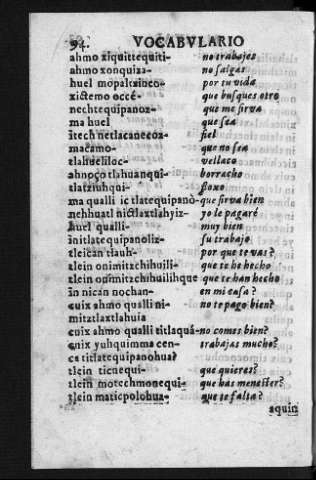 94. VOCABVLARIO
ahmo xiquittequiti- no trabajes
ahmo xonquiza- no salgas
huel mopaltzinco- por tu vida
xictemo occé- que busques otro
nechtequipanoz- que me sirva
ma huel que sea
itech netlacaneco- fiel
macamo- que no sea
tlahueliloc- vellaco
ahnoço tlahuanqui- borracho
tlatziuhqui- floxo
ma qualli ic tlatequipanò- que sirva bien
nehhuatl nictlaxtlahyiz- yo le pagaré
huel qualli- muy bien
initlatequipanoliz- su trabajo
tleican tiauh- por que te vas?
tlein onimitzchihuili- que te he hecho
tlein onmitzchihuilihque que te han hecho
in nican nochan- en mi casa?
cuix ahmo qualli ni- no te pago bien?
mitztlaxtlahuia
cuix ahmo qualli titlaquá- no comes bien?
cuix yuhquimma cen- trabajas mucho?
ca titlatequipanohua?
tlein ticnequi- que quieres?
tlein motechmonequi- que has menester?
tlein maticpolohua- que te falta?
aquin